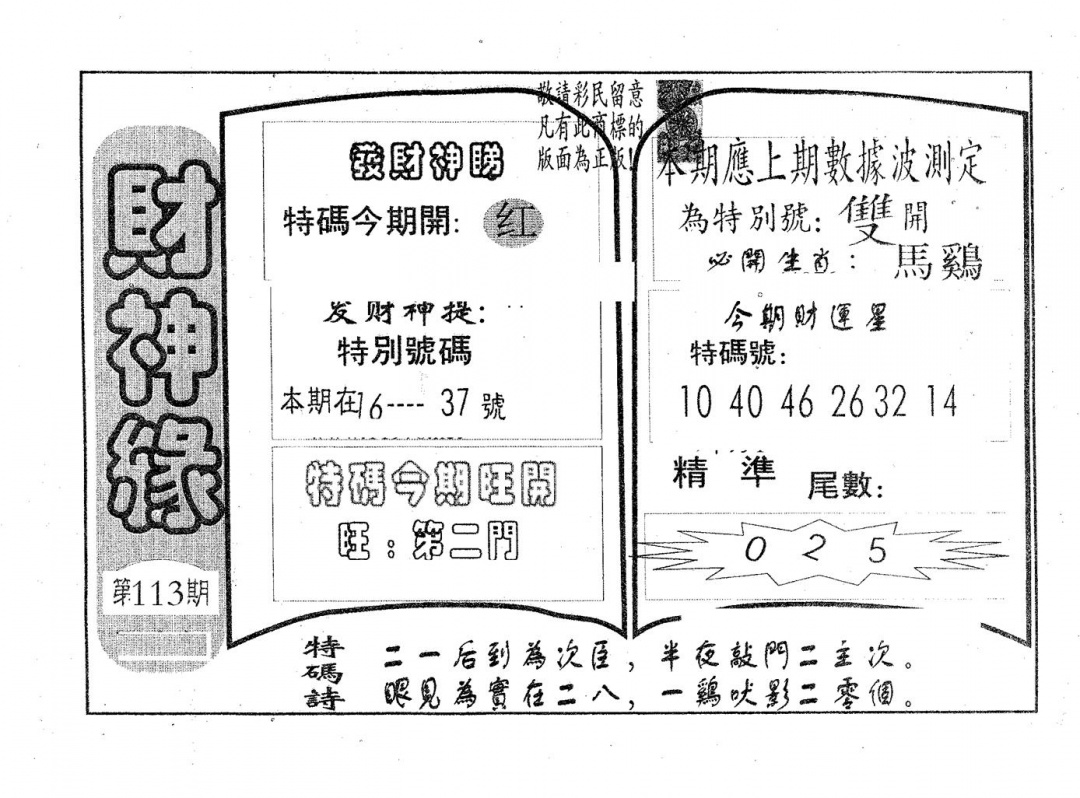 財神緣
第113期
敬請彩民留意
凡有此商標的
版面為正版!
發財神睇
特碼今期開: 红
发财神提:
特別號碼
本期在16---- 37 號
特碼今期旺開
旺:第二門
本期應上期數據波測定
為特別號: 雙 開
必開生肖: 馬鷄
今期財運星
特碼號:
10 40 46 26 32 14
精準 尾數:
0 2 5
特碼詩
二一后到為次臣,半夜敲門二主次。
眼見為實在二八,一鷄吠影二零個。